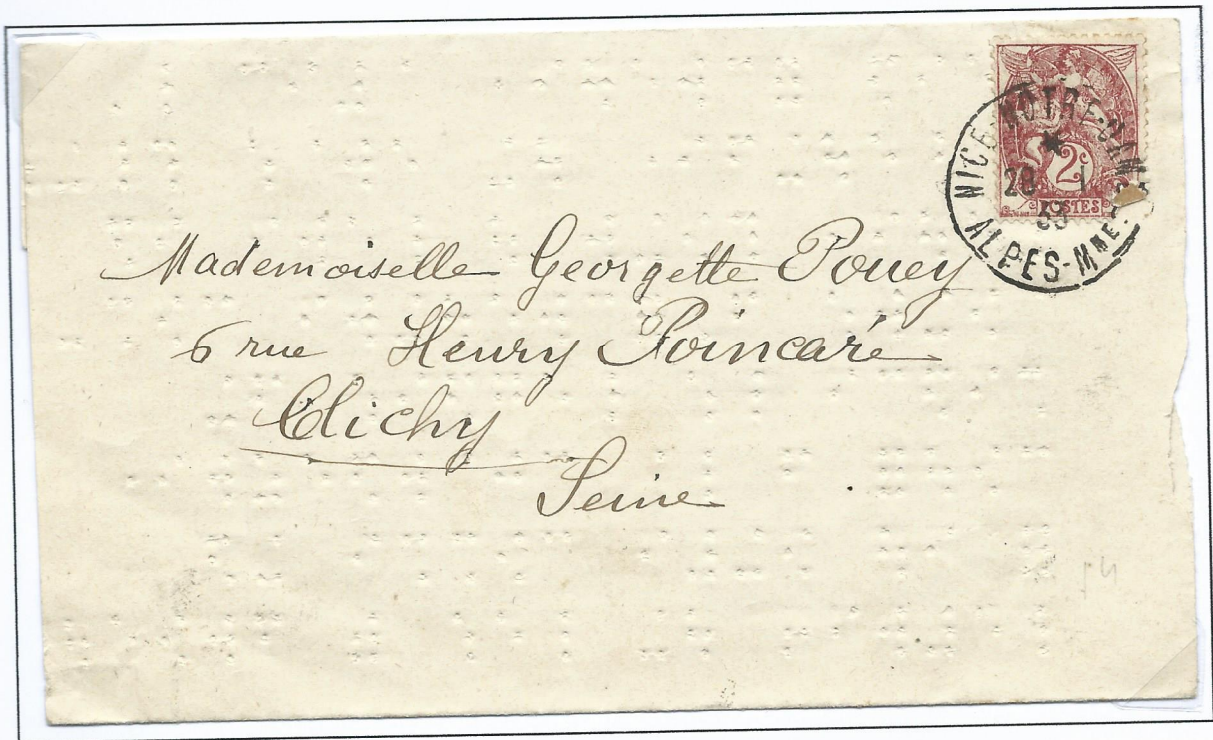 2c
POSTES
NICE-NOTRE-DAME
28 1
33
ALPES-MMES
Mademoiselle Georgette Pouey
6 rue Henry Poincaré
Clichy
Seine